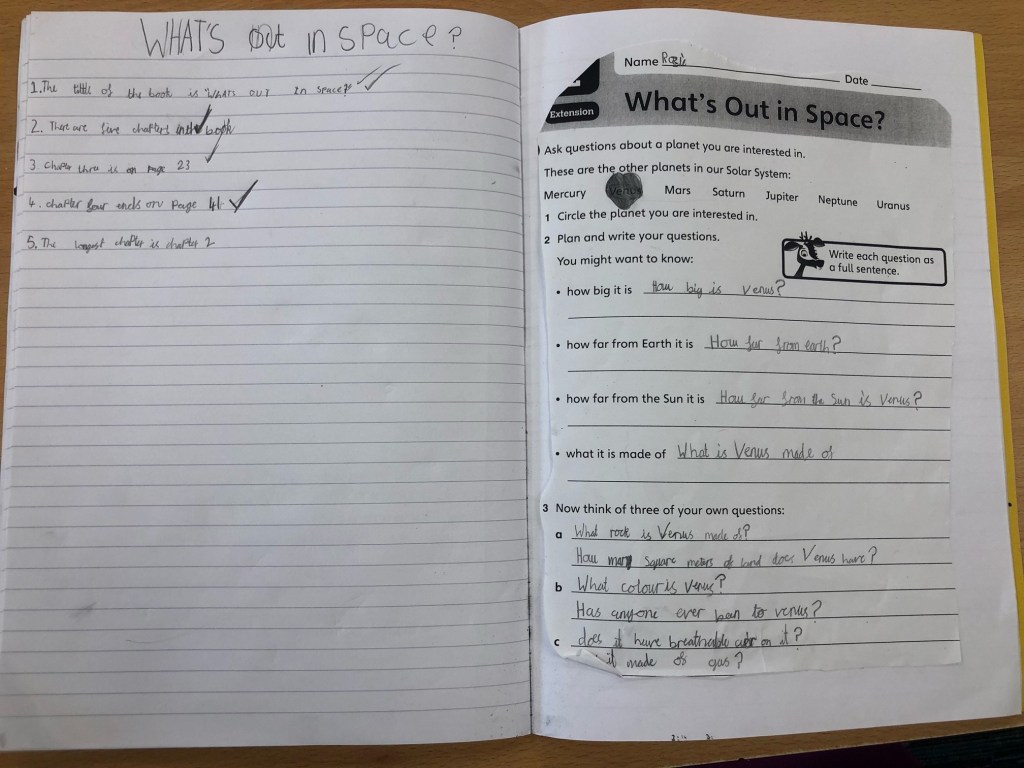 WHAT'S Out in SPace?
1. The tittle of the book is WHATS OUT in Space?
2. There are five chapters in the book
3. Chapter three is on page 23
4. chapter four ends on page 41
5. The longest chapter is chapter 2
Name
Date
Extension
What's Out in Space?
Ask questions about a planet you are interested in.
These are the other planets in our Solar System:
Mercury Venus Mars Saturn Jupiter Neptune Uranus
1 Circle the planet you are interested in.
2 Plan and write your questions.
Write each question as
a full sentence.
You might want to know:
• how big it is How big is venus?
• how far from Earth it is How far from earth?
• how far from the Sun it is How far from the Sun is Venus?
• what it is made of What is Venus made of
3 Now think of three of your own questions:
a What rock is Venus made of?
How many square meters of land does Venus have?
b What colour is venus?
Has anyone ever been to venus?
c does it have breathable air on it?
it made of gas?